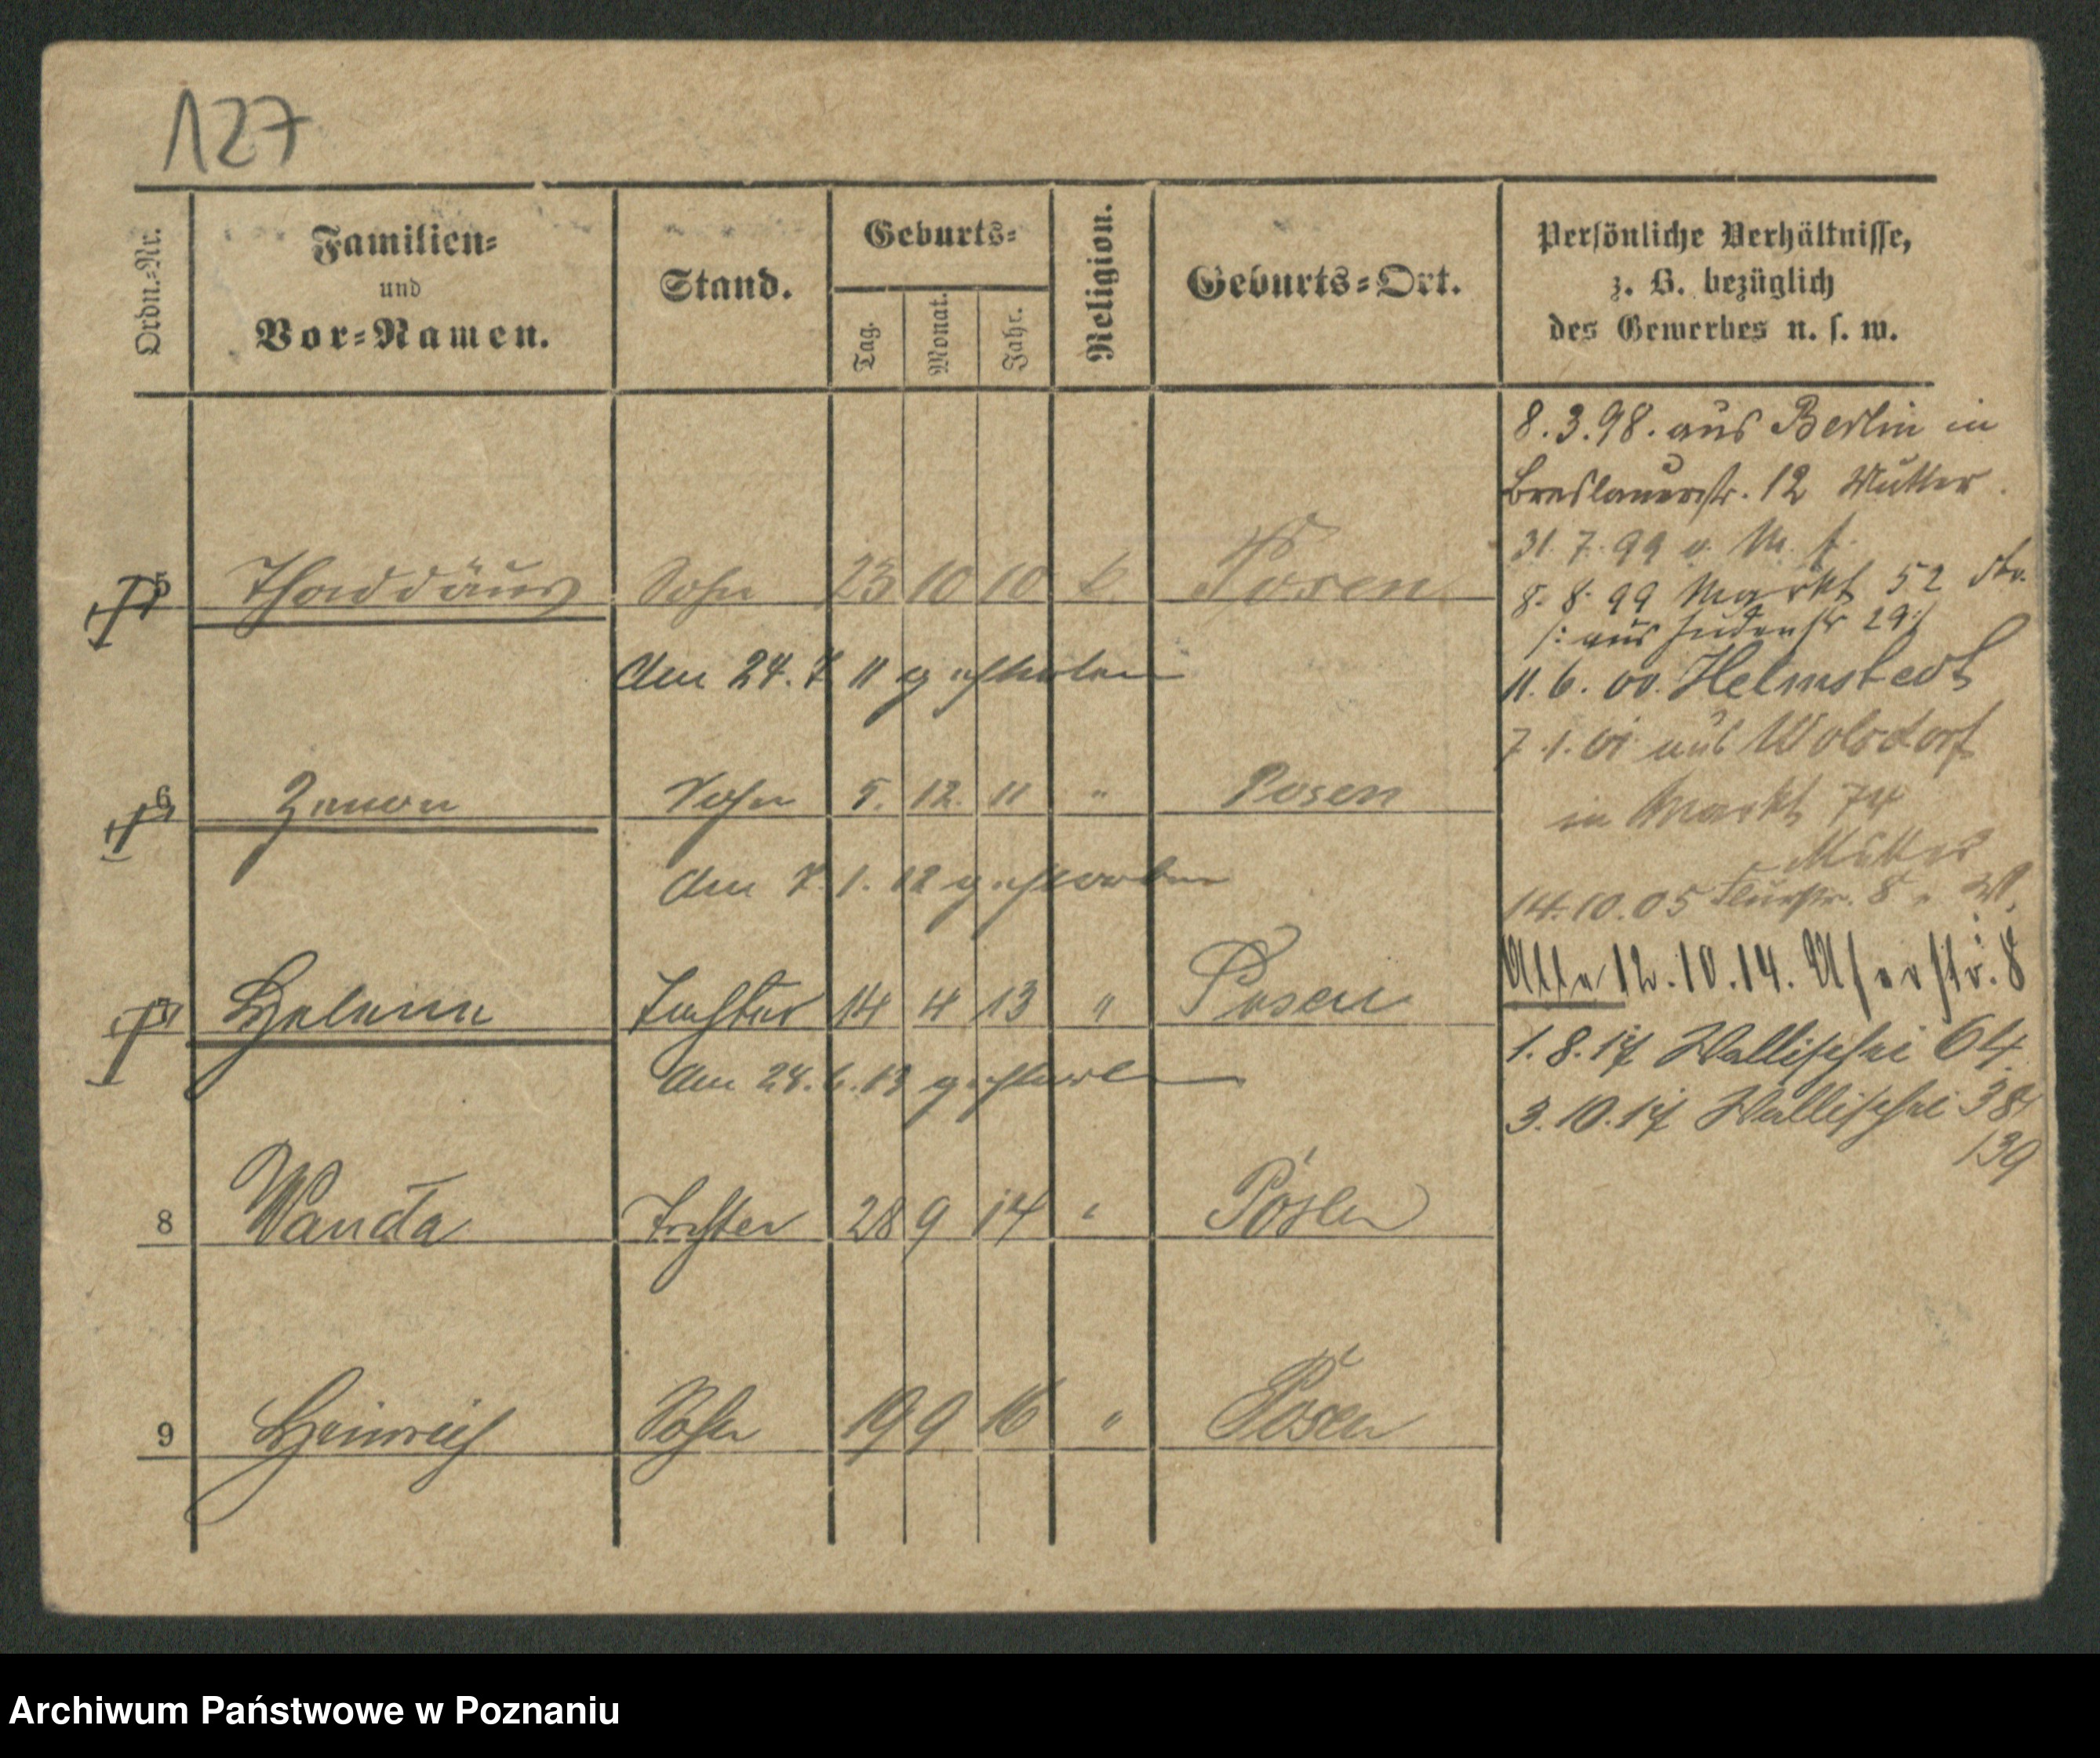 127
Ordn.=Nr.
Familien=
und
Vor=Namen.
Stand.
Geburts=
Tag.
Monat.
Jahr.
Religion.
Geburts=Ort.
Persönliche Verhältnisse,
z. B. bezüglich
des Gewerbes u. s. w.
8.3.98. aus Berlin in
Breslauerstr. 12 Mutter.
31 7. 99 v. M.
8. 8. 99 Markt 52
/: aus Judenstr 29 :/
11. 6. 00. Helmstedt
7.1.01 aus Wolsdorf
in Markt 74
Mutter
14.10.05 Flurstr. 8
12.10.14. Uferstr. 8
1. 8. 17 Wallischei 64
3. 10. 17 Wallischei 38/
139
5 Thaddäus Sohn 23 10 10 k. Posen
Am 24. 7 11 gestorben
6 Zenon Sohn 5. 12. 11 " Posen
Am 7. 1. 12 gestorben
7 Helene Tochter 14 4 13 " Posen
Am 24. 6. 13 gestorben
8 Wanda Tochter 28 9 14 " Posen
9 Heinrich Sohn 19 9 16 " Posen
Archiwum Państwowe w Poznaniu